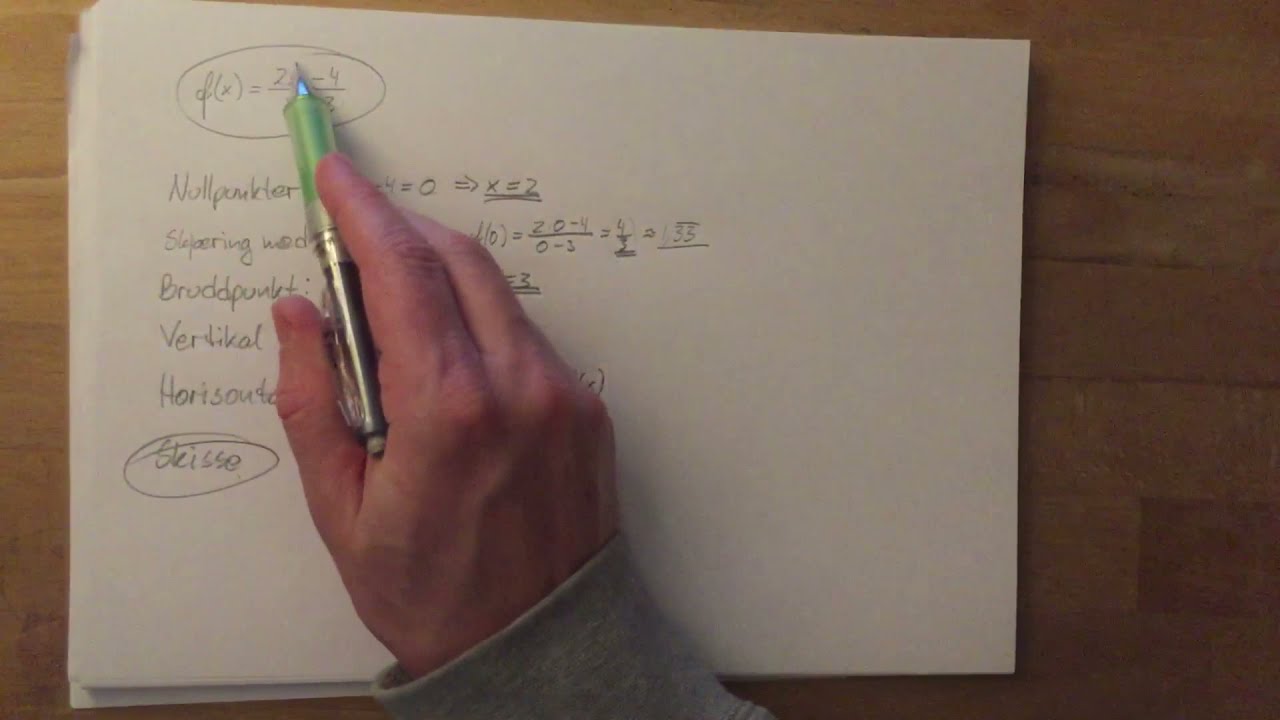 f(x) = 2 -4
Nullpunkter -4 = 0 ⇒ x = 2
Skjæring med f(0) = 2·0-4 / 0-3 = 4/3 ≈ 1,33
Bruddpunkt: =3
Vertikal
Horisonta (x)
Skisse